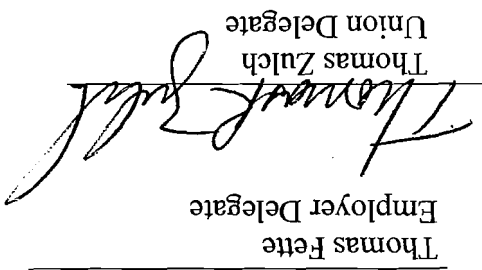 Thomas Fette
Employer Delegate
Thomas Zulch
Thomas Zulch
Union Delegate